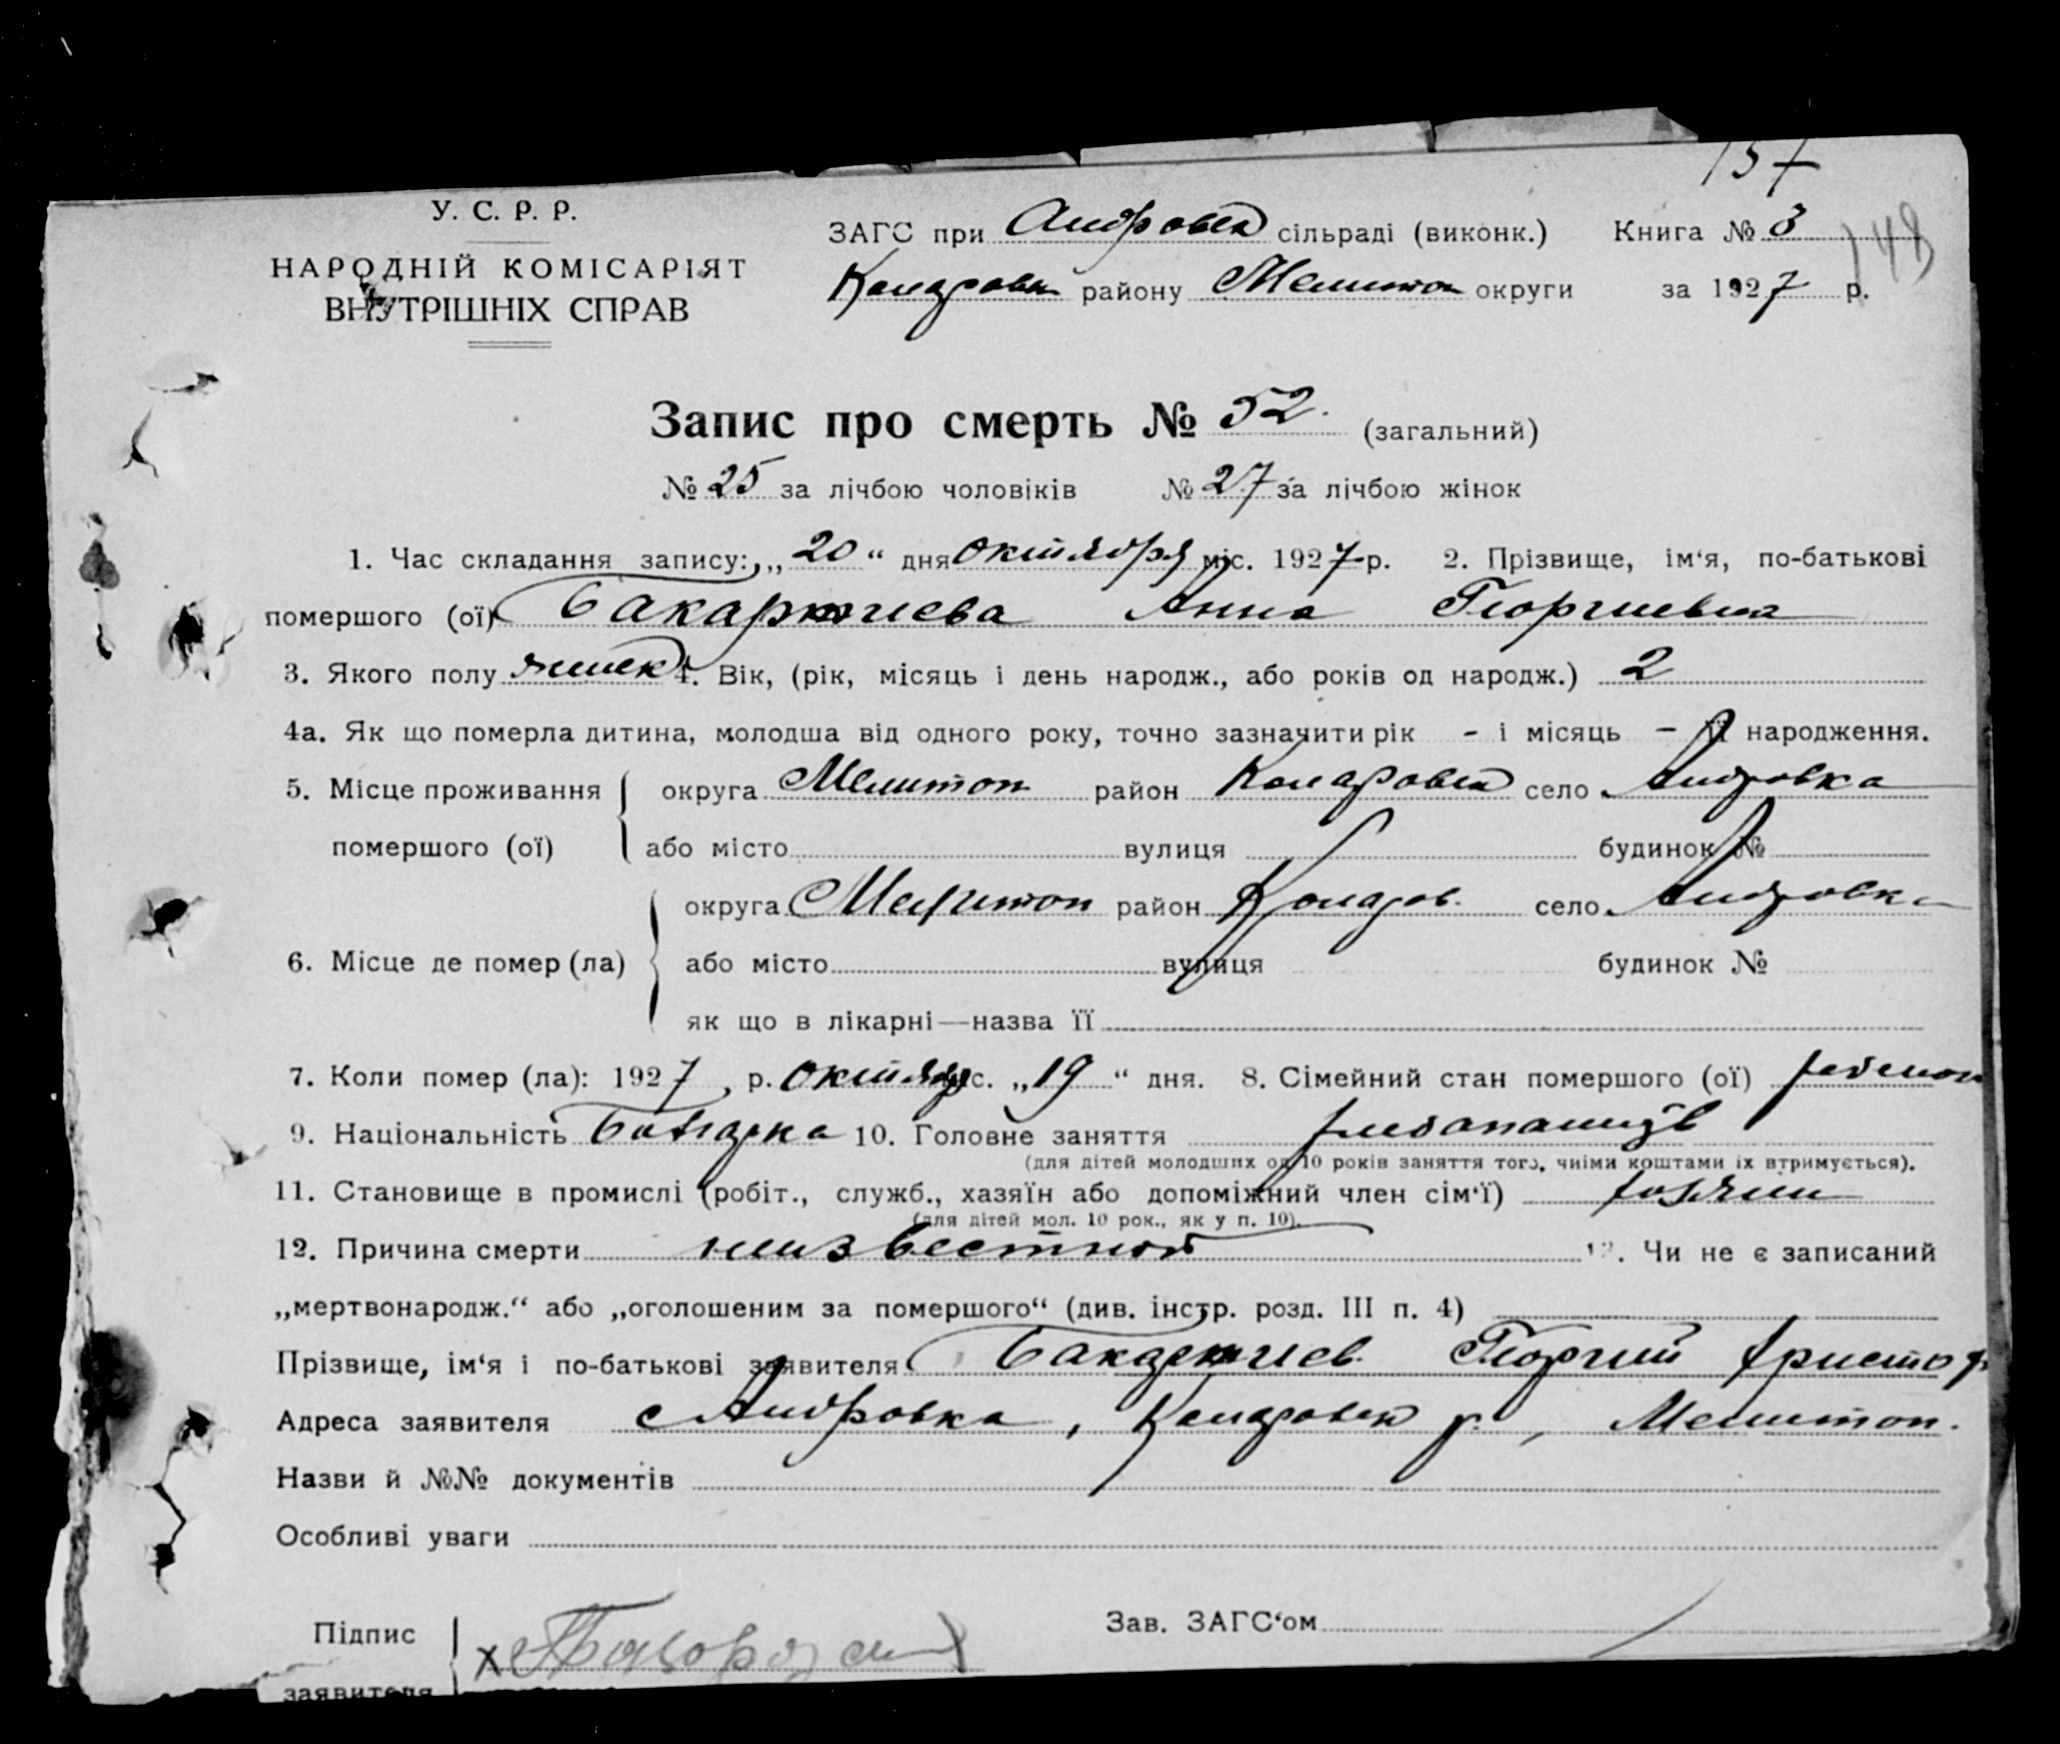 157
У. С. Р. Р.
НАРОДНІЙ КОМІСАРІЯТ
ВНУТРІШНІХ СПРАВ
ЗАГС при Андровск сільраді (виконк.) Книга № 3
148
Коларовск району Мелитоп округи за 1927 р.
Запис про смерть № 52. (загальний)
№ 25 за лічбою чоловіків № 27 за лічбою жінок
1. Час складання запису: „20“ дня октября міс. 1927 р. 2. Прізвище, ім‘я, по-батькові
помершого (ої) Бакарджиева Анна Георгиевна
3. Якого полу женск 4. Вік, (рік, місяць і день народж., або років од народж.) 2
4а. Як що померла дитина, молодша від одного року, точно зазначити рік - і місяць - її народження.
5. Місце проживання округа Мелитоп район Коларовск село Андровка
помершого (ої) або місто вулиця будинок №
округа Мелитоп район Коларов. село Андровка
6. Місце де помер (ла) або місто вулиця будинок №
як що в лікарні—назва її
7. Коли помер (ла): 1927, р. октябр міс. „19“ дня. 8. Сімейний стан помершого (ої) ребенок
9. Національність Болгарка 10. Головне заняття хлебопашество
(для дітей молодших од 10 років заняття того, чиїми коштами їх втримується).
11. Становище в промислі (робіт., служб., хазяїн або допоміжний член сім‘ї) хозяин
(для дітей мол. 10 рок., як у п. 10).
12. Причина смерти неизвестной 12. Чи не є записаний
„мертвонародж.“ або „оголошеним за помершого“ (див. інстр. розд. III п. 4)
Прізвище, ім‘я і по-батькові заявителя Бакарджиев Георгий Христоф
Адреса заявителя с Андровка, Коларовск р., Мелитоп.
Назви й №№ документів
Особливі уваги
Підпис Зав. ЗАГС‘ом
заявителя